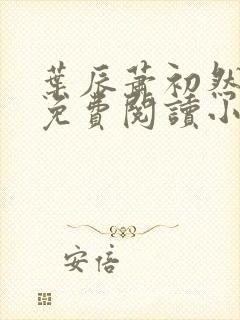 葉辰蕭初然
免費閱讀小
安倍